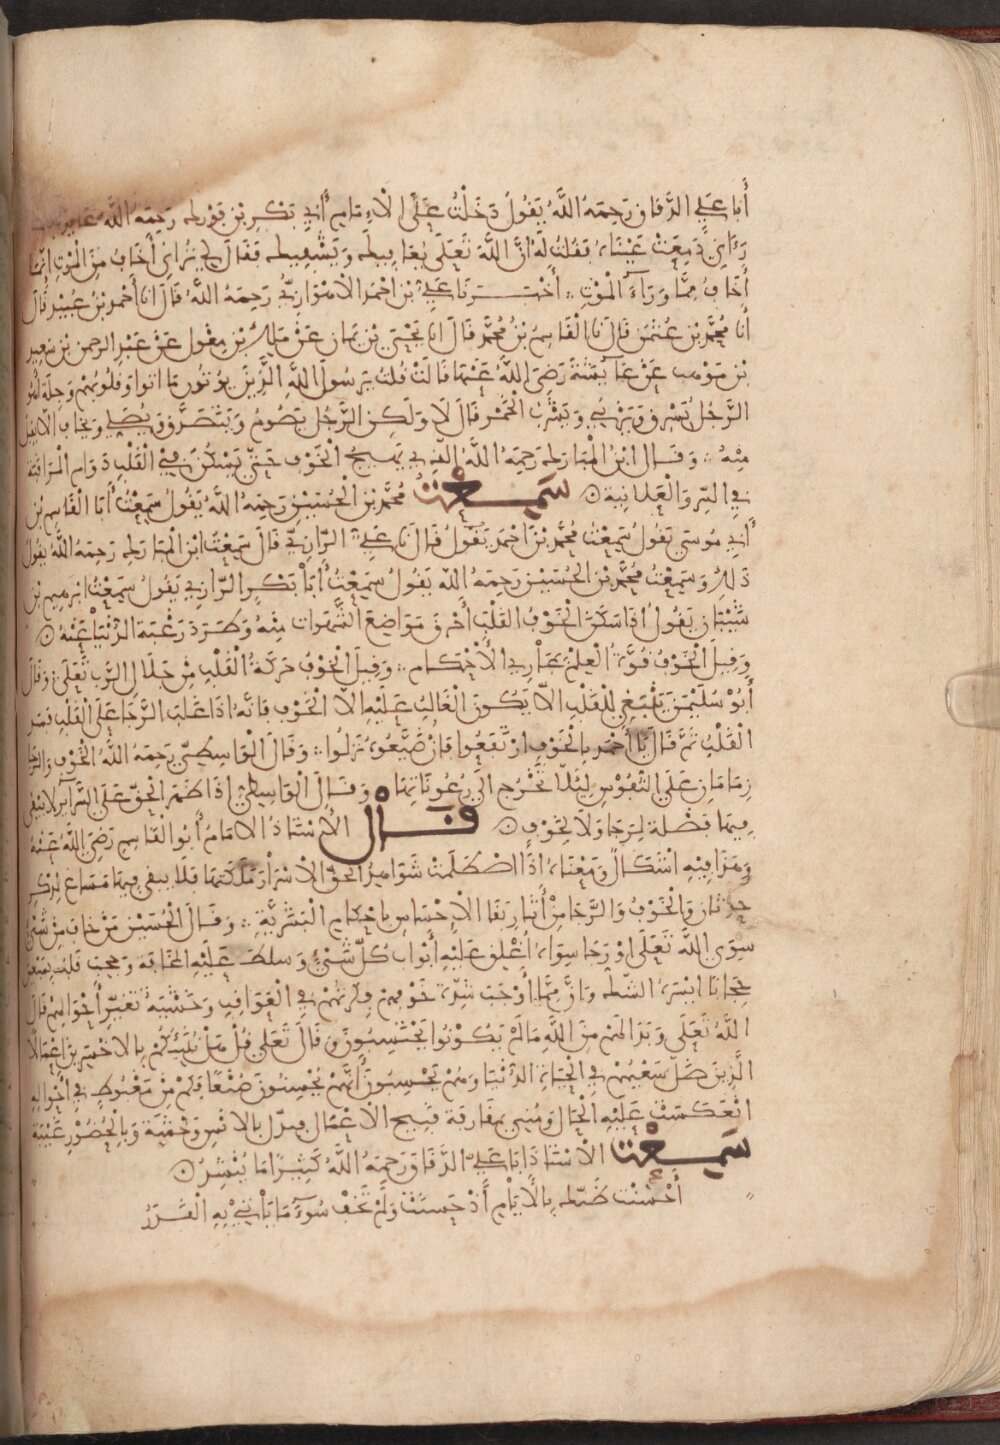 أَبَا عَلِي الدَّقَاق رَحِمَهُ اللَّهُ يَقُولُ دَخَلْتُ عَلَى الْإِمَامِ أَبِي بَكْرِ بْنِ فَوْرَك رَحِمَهُ اللَّهُ عَائِدًا
رَءَانِي دَمِعَتْ عَيْنَاهُ فَقُلْتُ لَهُ انَّ اللَّهَ تَعَلَى يُعَافِيكَ وَيَشْفِيكَ فَقَالَ لِي تَرَانِي أَخَافُ مِنَ الْمَوْتِ إِنَّمَا
أَخَافُ مِمَّا وَرَآءَ الْمَوْتِ ؞ أَخْبَـــرَنَا عَلِيُّ بْن أَحْمَدَ الْأَهْوَازِيُّ رَحِمَهُ اللَّهُ قَالَ انا أَحْمَدُ بْنُ عُبَيْدٍ قَالَ
أَنَا مُحَمَّدُ بْن عُثْمَن قَالَ نَا الْقَاسِمُ بْنُ مُحَمَّدٍ قَالَ انا يَحْيَى بْن يَمَانٍ عَنْ مَلِكِ بْنِ مِغْوَلٍ عَنْ عَبْدِ الرحمن بْنِ سَعِيدِ
بْنِ مَوْهب عَنْ عَآئِشَةَ رَضِيَ اللَّهُ عَنْهَا قَالَتْ قُلْتُ يَرَسُولَ اللَّهِ الَّذِينَ يُوتُونَ مَا اتَوا وَقُلُوبُهُمْ وَجِلَةٌ أَهُوَ
الرَّجُلُ يَسْرِق وَيَزْنِي وَيَشْرَبُ الْخَمْرَ قَالَ لَا وَلَكِنِ الرَّجُلُ يَصُومُ وَيَتَصَدَّقُ وَيُصَلِّي وَيَخَافُ الَّا يُقْبَلَ
مِنْهُ ؞ وَقَـــالَ ابْنُ الْمُبَارَكِ رَحِمَهُ اللَّهُ الَّذِي يُهَيِّجُ الْخَوْفَ حَتَّى يَسْكُنَ فِي الْقَلْبِ دَوَام الْمُرَاقَبَةِ
فِي السِّرِّ وَالْعَلَانِيَةِ ⊙ سَمِــعْتُ مُحَمَّدَ بْنَ الْحُسَيْنِ رَحِمَهُ اللَّهُ يَقُولُ سَمِعْتُ أَبَا الْقَاسِمِ بْن
أَبِي مُوسَى يَقُولُ سَمِعْتُ مُحَمَّدَ بْنَ أَحْمَدَ يَقُولُ قَالَ نَا عَلِيٌّ الرَّازِيُّ قَالَ سَمِعْتُ ابْنَ الْمُبَارَكِ رَحِمَهُ اللَّهُ يَقُولُ
ذَلِكَ وَسَمِعْتُ مُحَمَّدَ بْنَ الْحُسَيْنِ رَحِمَهُ اللَّهُ يَقُولُ سَمِعْتُ أَبَا بَكْرٍ الرَّازِيَّ يَقُولُ سَمِعْتُ ابْرَهِيمَ بْن
شَيْبَانَ يَقُولُ اذَا سَكَنَ الْخَوْفُ الْقَلْبَ أَحْرَقَ مَوَاضِعَ الشَّهَوَات مِنْهُ وَطَرَدَ رَغْبَةَ الدُّنْيَا عَنْهُ ⊙
وَقِيلَ الْخَوْفُ قُوَّةُ الْعِلْمِ بِمَجَارِي الْأَحْكَامِ ؞ وَقِيلَ الْخَوْفُ حَرَكَةُ الْقَلْبِ مِنْ جَلَالِ الرَّبِّ تَعَلَى ؞ وَقَالَ
أَبُو سُلَيْمَنَ يَنْبَغِي لِلْقَلْبِ الَّا يَكُونَ الْغَالِبُ عَلَيْهِ الَّا الْخَوْفَ فَانَّهُ اذَا غَلَبَ الرَّجَا عَلَى الْقَلْبِ فَسَدَ
الْقَلْبُ ثُمَّ قَالَ يَا أَحْمَدُ بِالْخَوْفِ ارْتَفَعُوا فَانْ ضَيَّعُوهُ نَزَلُوا ؞ وَقَالَ الْوَاسِطِيُّ رَحِمَهُ اللَّهُ الْخَوْفُ وَالرَّجَا
زِمَامَانِ عَلَى النُّفُوْسِ لِئَلَّا تَخْرُجَ الَى رُعُونَاتِهَا وَقَـــالَ الْوَاسِطِي اذَا ظَهَرَ الْحَقُّ عَلَى السَّرَآئِرِ لَا يَبْقَى
فِيهَا فَضْلَة لِرَجَا وَلَا لِخَوْفٍ ⊙ قَـــالْ الْأُسْتَاذُ الامَامُ أَبُو الْقَاسِمِ رَضِيَ اللَّهُ عَنْهُ
وَهَذَا فِيهِ اشْكَالٌ وَمَعْنَاهُ اذَا اصْطَلَمَتْ شَوَاهِدُ الْحَقِّ الْأَسْرَارَ مَلَكَتْهَا فَلَا يبقى فِيهَا مَسَاغ لِذِكْرِ
حِدْثَانٍ وَالْخَوْفُ وَالرَّجَا مِنْ أَثَارِ بَقَا الْإِحْسَاسِ بِاحْكَامِ الْبَشَرِيَّةِ ؞ وَقَـــالَ الْحُسَيْن مَنْ خَافَ مِنْ شَيْءٍ
سِوَى اللَّهِ تَعَلَى اوْ رَجَا سِوَاهُ أُغْلِقَ عَلَيْهِ أَبْوَابُ كُلِّ شَيْءٍ وَسلطَ عَلَيْهِ الْمَخَافَةَ وَحجِبَ قَلْبُهُ بِسَبْعِينَ
حِجَابًا ايْسَرُهُ الشَّكُّ وَانَّ مِمَّا أَوْجَبَ شِدَّةَ خَوْفِهِمْ فِكْرَتهُمْ فِي الْعَوَاقِبِ وَخَشْيَةُ تَغَيُّرِ أَحْوَالِهِمْ قَالَ
اللَّهُ تَعَلَى وَبَدَا لَهُمْ مِنَ اللَّهِ مَا لَمْ يَكُوْنُوا يَحْتَسِبُونَ وَقَالَ تَعَلَى قُلْ هَلْ نُنَبِّئُكُمْ بِالاخْسَرِينَ أَعْمَالًا
الَّذِينَ ضَلَّ سَعْيُهُمْ فِي الْحَيَاةِ الدُّنْيَا وَهُمْ يَحْسِبُونَ أَنَّهُمْ يُحْسِنُونَ صُنْعًا فَكَمْ مِنْ مَغْبُوطٍ فِي أَحْوَالِهِ
انْعَكَسَتْ عَلَيْهِ الْحَالُ وَمُنِيَ بِمُقَارَفَةِ قَبِيحِ الْأَعْمَالِ فبدّل بِالانْسِ وَحْشَة وَبِالْحُضُوْرِ غَيْبَة
سَمِــعْتُ الْأُسْتَاذَ ابَا عَلِيٍّ الدَّقَاقَ رَحِمَهُ اللَّهُ كَثِيْرًا مَا يُنْشِدُ ⊙
أَحْسَنْتَ ظَنَّكَ بِالْأَيَّامِ أَذْ حَسُنَتْ وَلَمْ تَخَفْ سُوءَ مَا يَأْتِيْ بِهِ الْقَدَرُ